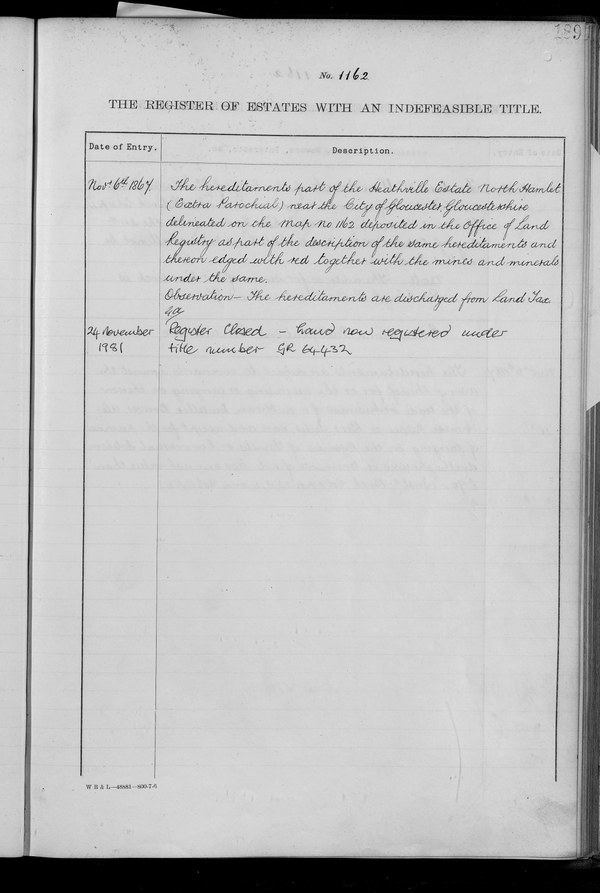 189
No. 1162
THE REGISTER OF ESTATES WITH AN INDEFEASIBLE TITLE.
Date of Entry. Description.
Novr 6th 1867 The hereditaments part of the Heathville Estate North Hamlet
(Extra Parochial) near the City of Gloucester Gloucestershire
delineated on the Map No 1162 deposited in the Office of Land
Registry as part of the description of the same hereditaments and
thereon edged with red together with the mines and minerals
under the same.
Observation – The hereditaments are discharged from Land Tax.
24 November Register Closed – land now registered under
1981 title number GR 64432
W B & L—48881—800-7-6